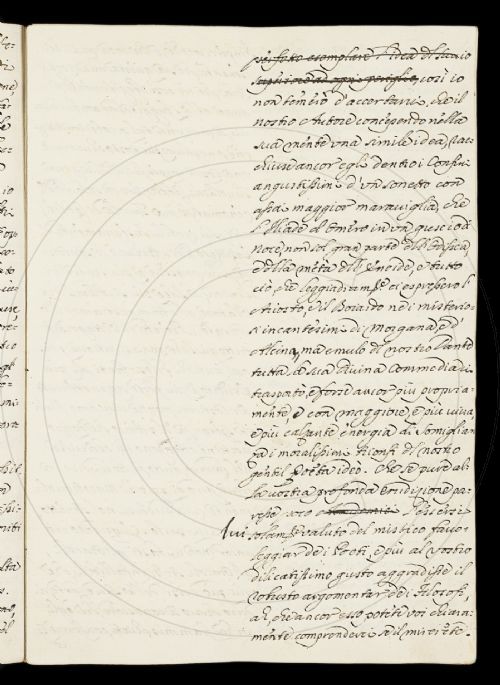 perfetto esemplare l'idea del savio
cosi io
non temerò d'accertarvi, che il
nostro Autore concependo nella
sua mente una simile idea, rac-
chiuse ancor egli dentro i confini
angustissimi d'un sonetto con
assai maggior maraviglia, che
l'Iliade d'Omero in una guscio di
noce, non sol gran parte dell' Odissea
e della metà dell' Eneide, e tutto
ciò, che leggiadramte. ci espressero l'
Ariosto, e il Boiardo nei misterio-
si incantesimi di Morgana, ed
Alcina, ma emulo del nostro Dante
tutta la sua Divina Commedia vi
trasportò, e forse ancor più propria-
mente, e con maggiore, e più viva,
e più calzante energia di somiglian-
za i moralissimi trionfi del nostro
gentil Poeta ideò. Che se pure al-
la vostra profonda erudizione pa-
resse
lui solamte. valuto del mistico favo-
leggiar dei Poeti, e più al vostro
dilicatissimo gusto aggradisse il
robusto argomentar dei Filosofi,
ah che ancor esso potete voi chiara-
mente comprendere se il mirerete.